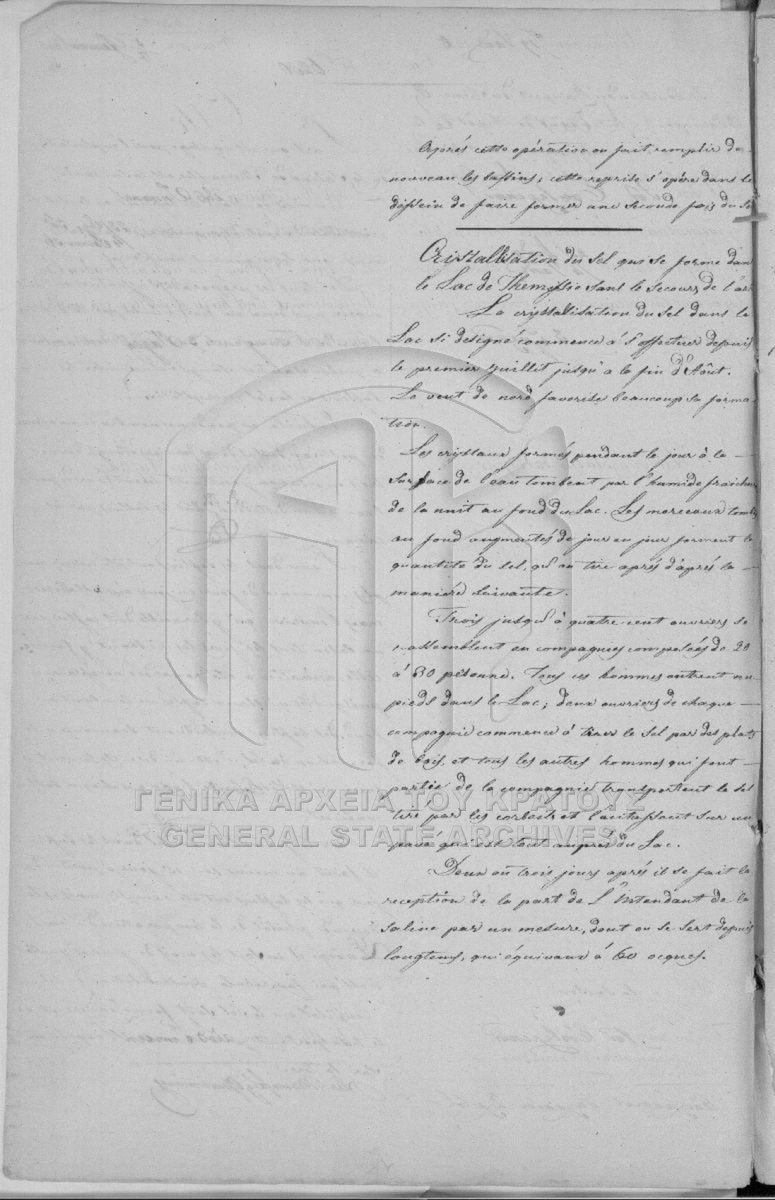 Après cette opération on fait remplir de
nouveau les bassins; cette reprise s'opère dans le
dessein de faire former une seconde fois du Se
Cristallisation du sel que se forme dans
le Lac de Themissio sans le secours de l'ar
La cristallisation du sel dans le
Lac si désigné commence à s'effectuer depuis
le premier Juillet jusqu'a la fin d'Août.
Le vent de nord favorise beaucoup sa forma-
tion.
Les cristaux formés pendant le jour à la
surface de l'eau tombent par l'humide fraicheur
de la nuit au fond du Lac. Les morceaux tombés
au fond augmentés de jour en jour forment la
quantité du sel, qu'on tire après d'après la
manière suivante.
Trois jusqu'à quatre cent ouvriers se
rassemblent en compagnies composées de 20
à 30 personne. Tous ces hommes entrent nu
pieds dans le Lac; deux ouvriers de chaque
compagnie commence à tirer le sel par des plats
de bois et tous les autres hommes qui font
partie de la compagnie transportent le sel
tiré par les corbeils et l'entassent sur un
pavé qui est tout auprès du Lac.
Deux où trois jours après il se fait la
reception de la part de L'Intendant de la
saline par un mesure, dont on se sert depuis
longtems, qui équivaux à 60 ocques.
ΓΕΝΙΚΑ ΑΡΧΕΙΑ ΤΟΥ ΚΡΑΤΟΥΣ
GENERAL STATE ARCHIVES